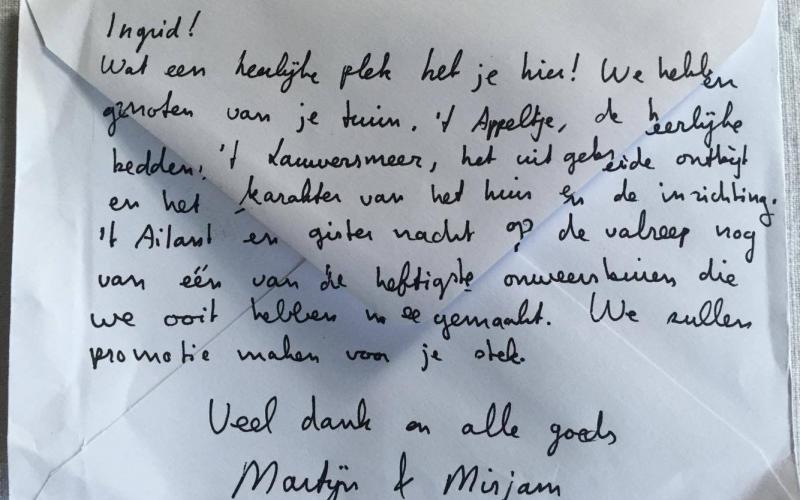 Ingrid!
Wat een heerlijke plek heb je hier! We hebben
genoten van je tuin. 't Appeltje, de heerlijke
bedden, 't Lauwersmeer, het uitgebreide ontbijt
en het karakter van het huis en de inrichting.
't Ailant en gisternacht op de valreep nog
van één van de heftigste onweersbuien die
we ooit hebben meegemaakt. We zullen
promotie maken voor je stek.
Veel dank en alle goeds
Martijn & Mirjam